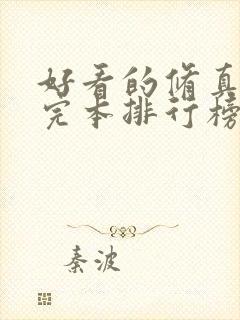 好看的脩真
完本排行榜
秦波